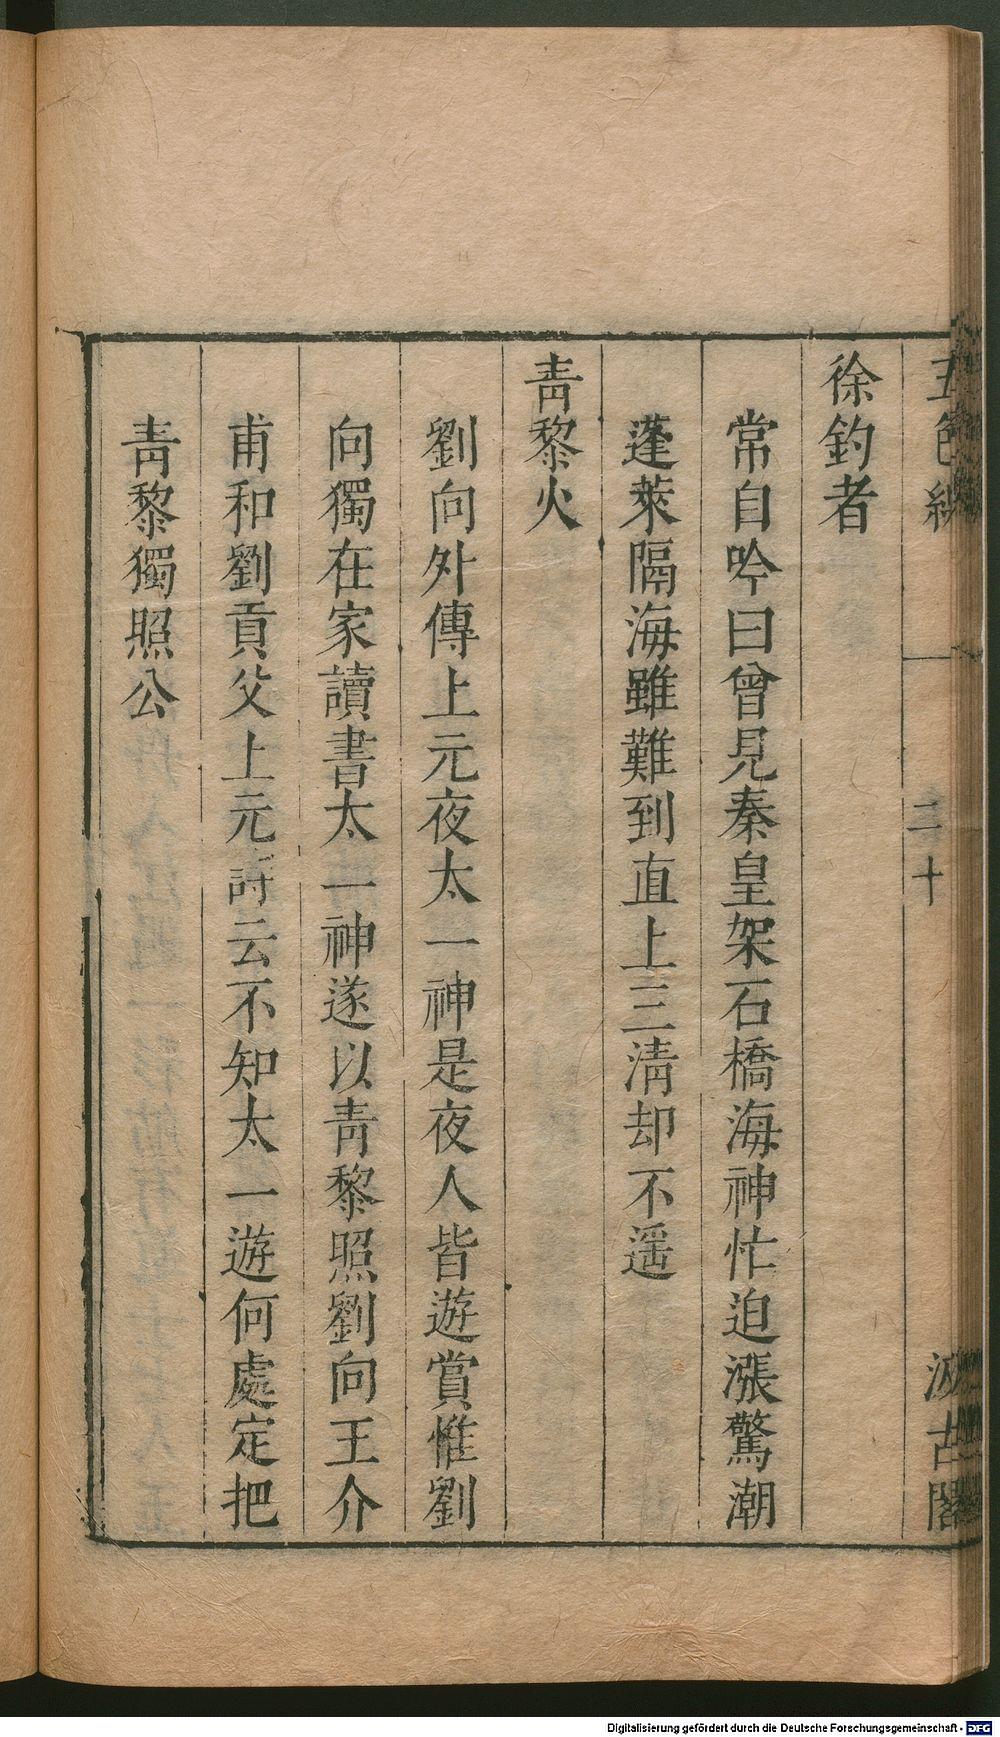 五色線
二十
汲古閣
徐釣者
常自吟曰曾見秦皇架石橋海神忙迫漲驚潮
蓬萊隔海雖難到直上三淸却不遥
靑黎火
劉向外傳上元夜太一神是夜人皆遊賞惟劉
向獨在家讀書太一神遂以靑黎照劉向王介
甫和劉貢父上元詩云不知太一遊何處定把
靑黎獨照公
Digitalisierung gefördert durch die Deutsche Forschungsgemeinschaft - DFG